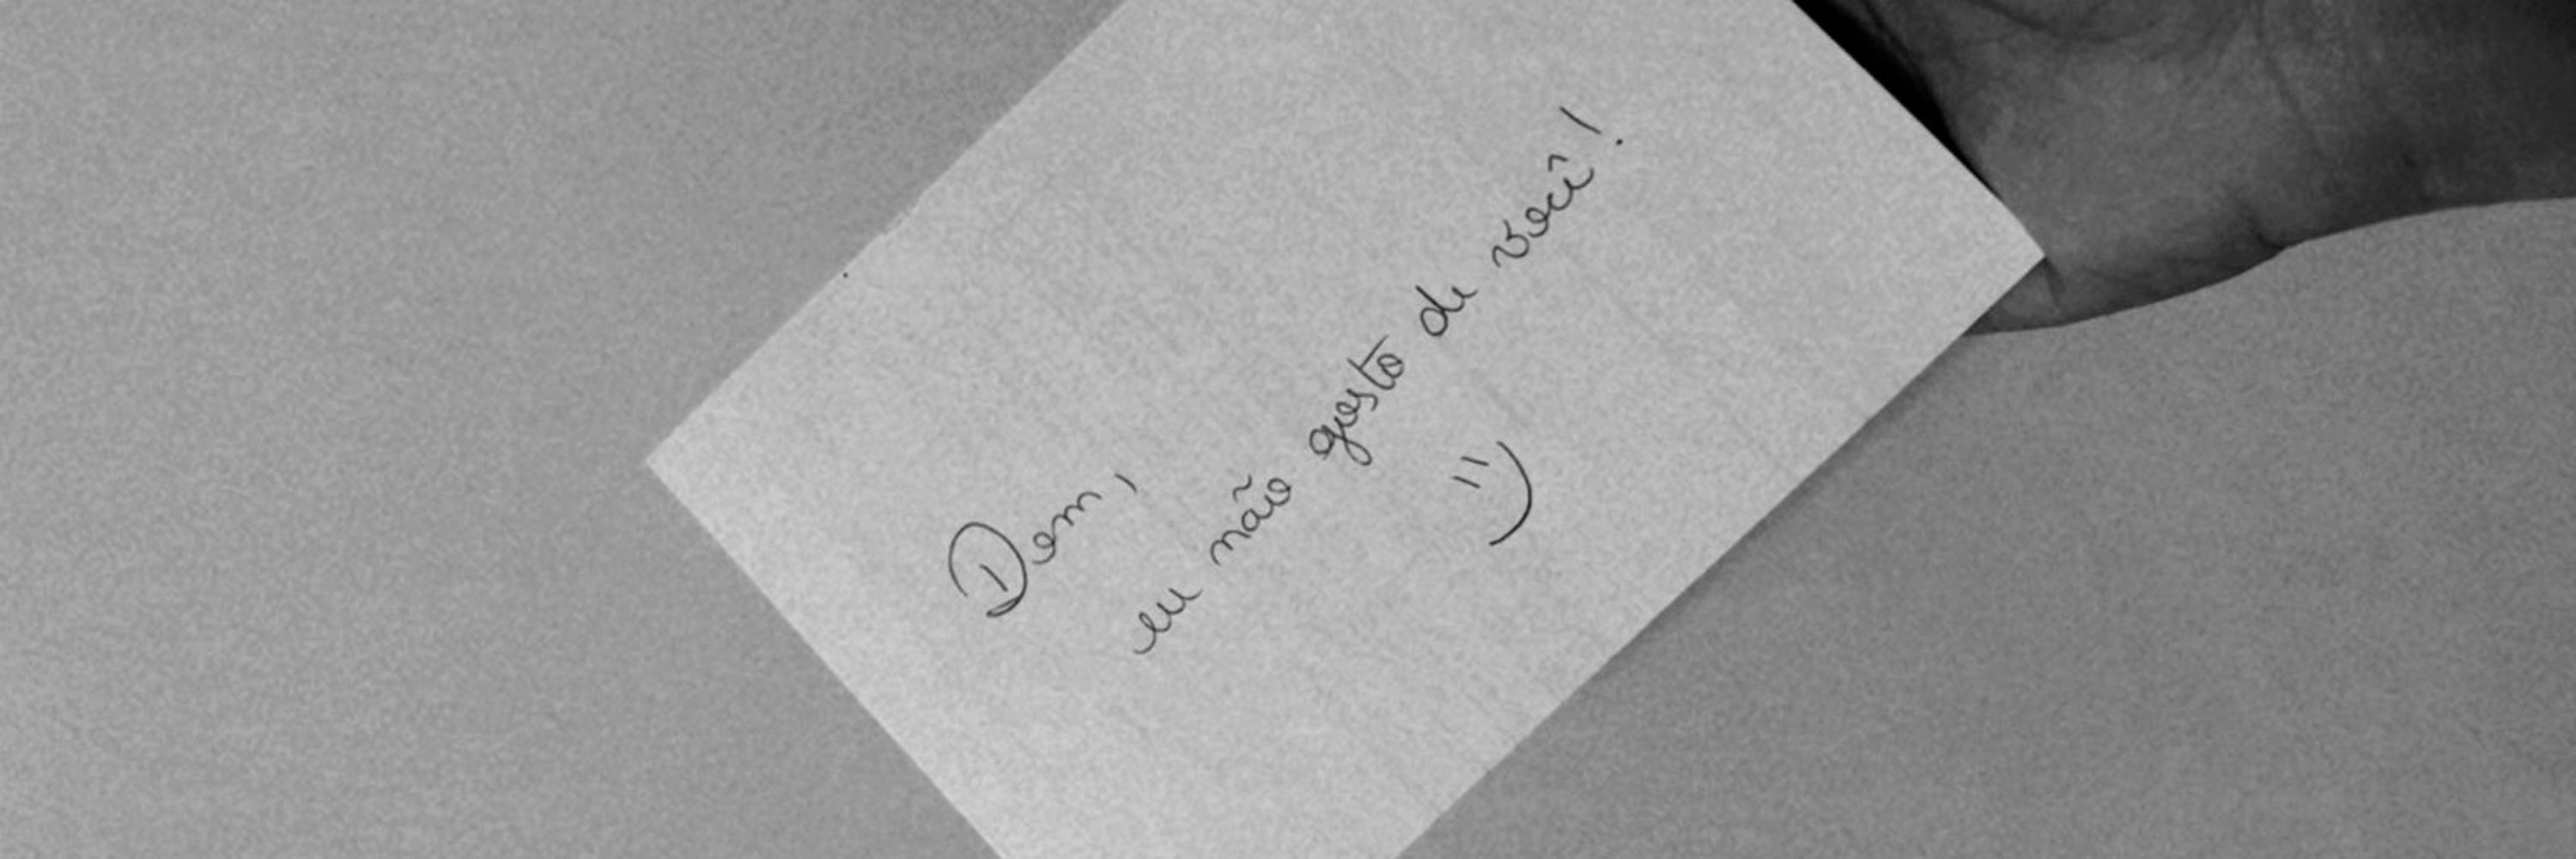 Dom,
eu não gosto de você!
=)